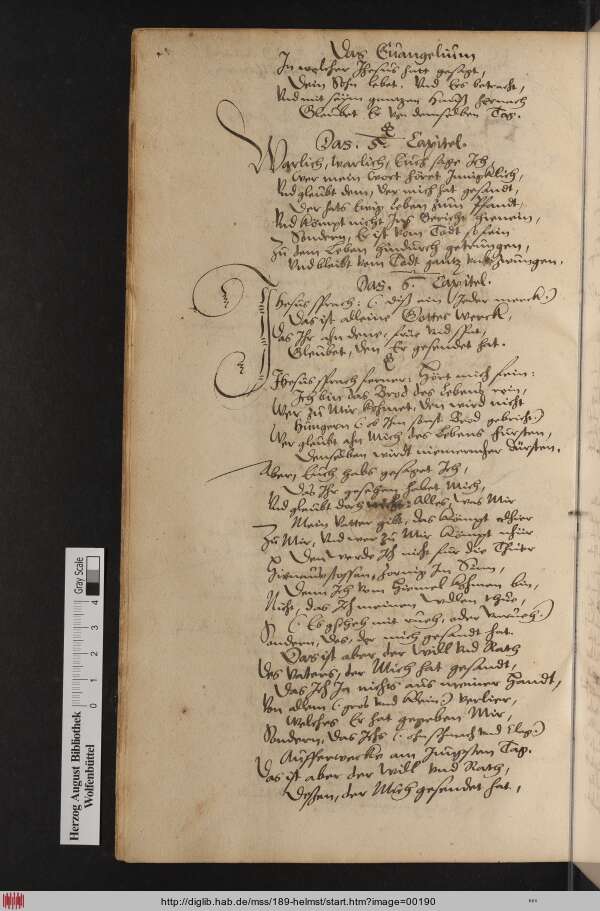 Das Euangelium
In welcher Jhesus hatt gesagt,
Dein Sohn lebet. Vnd Er betracht,
Vnd mit seim gantzen Hauß hernach
Glaubet Er von demselben Tag.
Das. 5. Capitel.
Warlich, warlich, Euch sage Ich,
wer mein Wort höret Inniglich,
Vnd glaubt dem, der mich hat gesandt,
Der hats Ewig Leben zum Pfandt,
Vnd kömpt nicht Ins Gericht hienein,
Sondern, Er ist vom Todt so fein
Zu dem Leben hindurch getrungen,
Vnd bleibt vom Todt gantz vnbezwungen.
Das. 6. Capitel.
Jhesus sprach: (: diß ein Jeder merck :)
Das ist alleine Gottes Werck,
das Ihr an dene, frue vnd spat,
Glaubet, den Er gesendet hat.
Jhesus sprach ferner: Hört mich fein:
Ich bin das Brod des Lebens rein,
Wer zu Mir kohmet, den wird nicht
Hungern (: ob Ihm sonst Brod gebricht :)
Wer glaubt ahn Mich des Lebens Fürsten,
Denselben wirdt niemermher Dürsten.
Aber, Euch habs gesaget Ich,
Das Ihr gesehen habet Mich,
Vnd glaubt doch nicht: Alles, was Mir
Mein Vatter gibt, das kömpt alhier
Zu Mir, Vnd wer zu Mir kömpt
Den werde Ich nicht für die Thüre
Hienausstossen, zornig Im Sinn,
Denn Ich vom Himel kohmen bin,
Nicht, das Ich meinen willen thue,
(: Es gscheh mit rueh, oder vnrueh :)
Sondern, des, der mich gesandt hat.
Das ist aber der will Vnd Rath
des Vatters, der Mich hat gesandt,
Das Ich In nichts aus meiner Handt,
Von allem (: gros vnd klein :) verlier,
Welches Er hat gegeben Mir,
Sondern, das Ichs (: ohn schmach vnd Clag :)
Aufferwecke am Jungsten Tag.
Das ist aber der will vnd Rath,
Deßen, der Mich gesendet hat,
Herzog August Bibliothek
Wolfenbüttel
Gray Scale
0 1 2 3 4
http://diglib.hab.de/mss/189-helmst/start.htm?image=00190